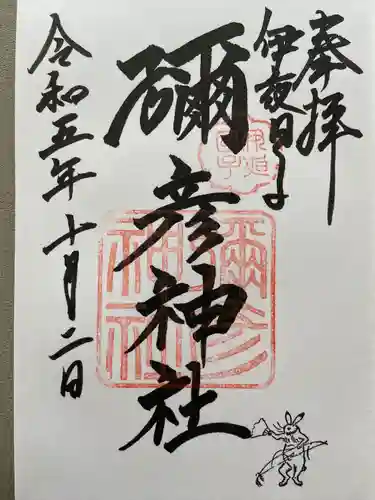 奉拝
伊夜日子
彌彦神社
令和五年十月二日
彌彦神社